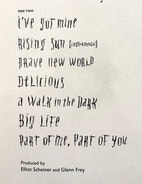 SIDE TWO
I've got mine
Rising Sun [instrumental]
Brave New World
Delicious
a Walk in the Dark
Big Life
Part of me, Part of you
Produced by
Elliot Scheiner and Glenn Frey